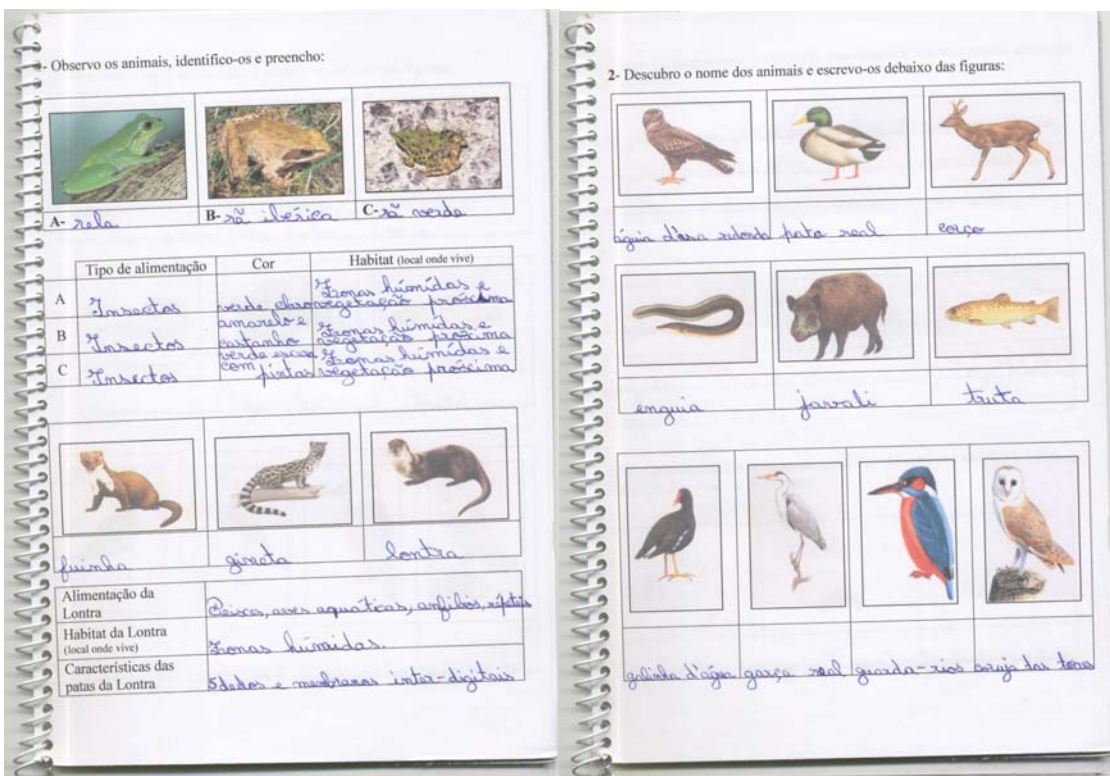 - Observo os animais, identifico-os e preencho:
A- rela B- rã ibérica C- rã verde
Tipo de alimentação Cor Habitat (local onde vive)
A Insectos verde claro Zonas húmidas e vegetação próxima
B Insectos amarelo e castanho Zonas húmidas e vegetação próxima
C Insectos verde escuro com pintas Zonas húmidas e vegetação próxima
fuinha gineta lontra
Alimentação da Lontra Peixes, aves aquáticas, anfíbos, répteis
Habitat da Lontra (local onde vive) Zonas húmidas.
Características das patas da Lontra 5 dedos e membranas inter-digitais
2- Descubro o nome dos animais e escrevo-os debaixo das figuras:
águia d'asa redonda pato real corço
enguia javali truta
galinha d'água garça real guarda-rios coruja das torres